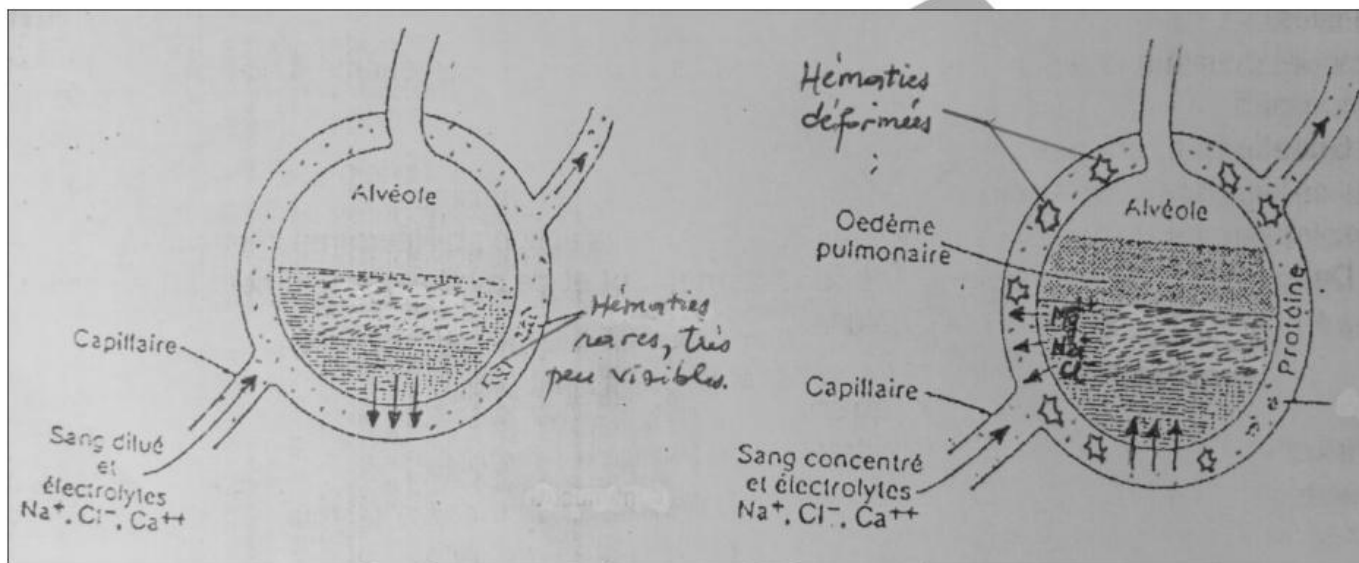 Alvéole
Hématies
rares, très
peu visibles.
Capillaire
Sang dilué
et
électrolytes
Na⁺, Cl⁻, Ca⁺⁺
Hématies
déformées
Alvéole
Oedème
pulmonaire
Mg⁺⁺
Na⁺
Cl⁻
Protéine
Capillaire
Sang concentré
et électrolytes
Na⁺, Cl⁻, Ca⁺⁺